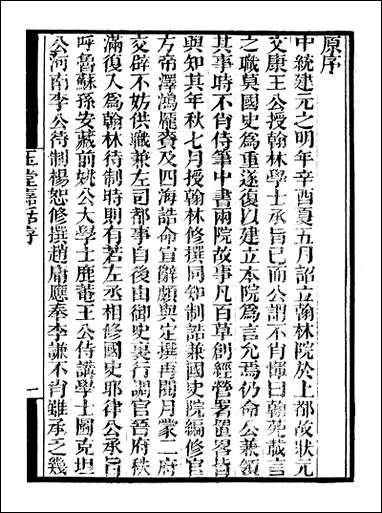 原序
中統建元之明年辛酉夏五月詔立翰林院於上都故狀元
文康王公授翰林學士承旨已而公謂不肖惲曰翰苑載言
之職莫國史為重遂復以建立本院為言允焉仍命公兼領
其事時不肖侍筆中書兩院故事凡百草創經營署置畧皆
與知其年秋七月授翰林修撰同知制誥兼國史院編修官
方帝澤鴻龐賚及四海誥命宣辭頗與定撰再閱月蒙二府
交辟不妨供職兼左司都事自後由御史裏行調官晉府秩
滿復入為翰林待制時則有若左丞相修國史耶律公承旨
呼魯蘇孫安藏前姚公大學士鹿菴王公侍講學士圖克坦
公河南李公待制楊恕修撰趙庸應奉李謙不肖雖承乏幾
玉堂嘉話序
一